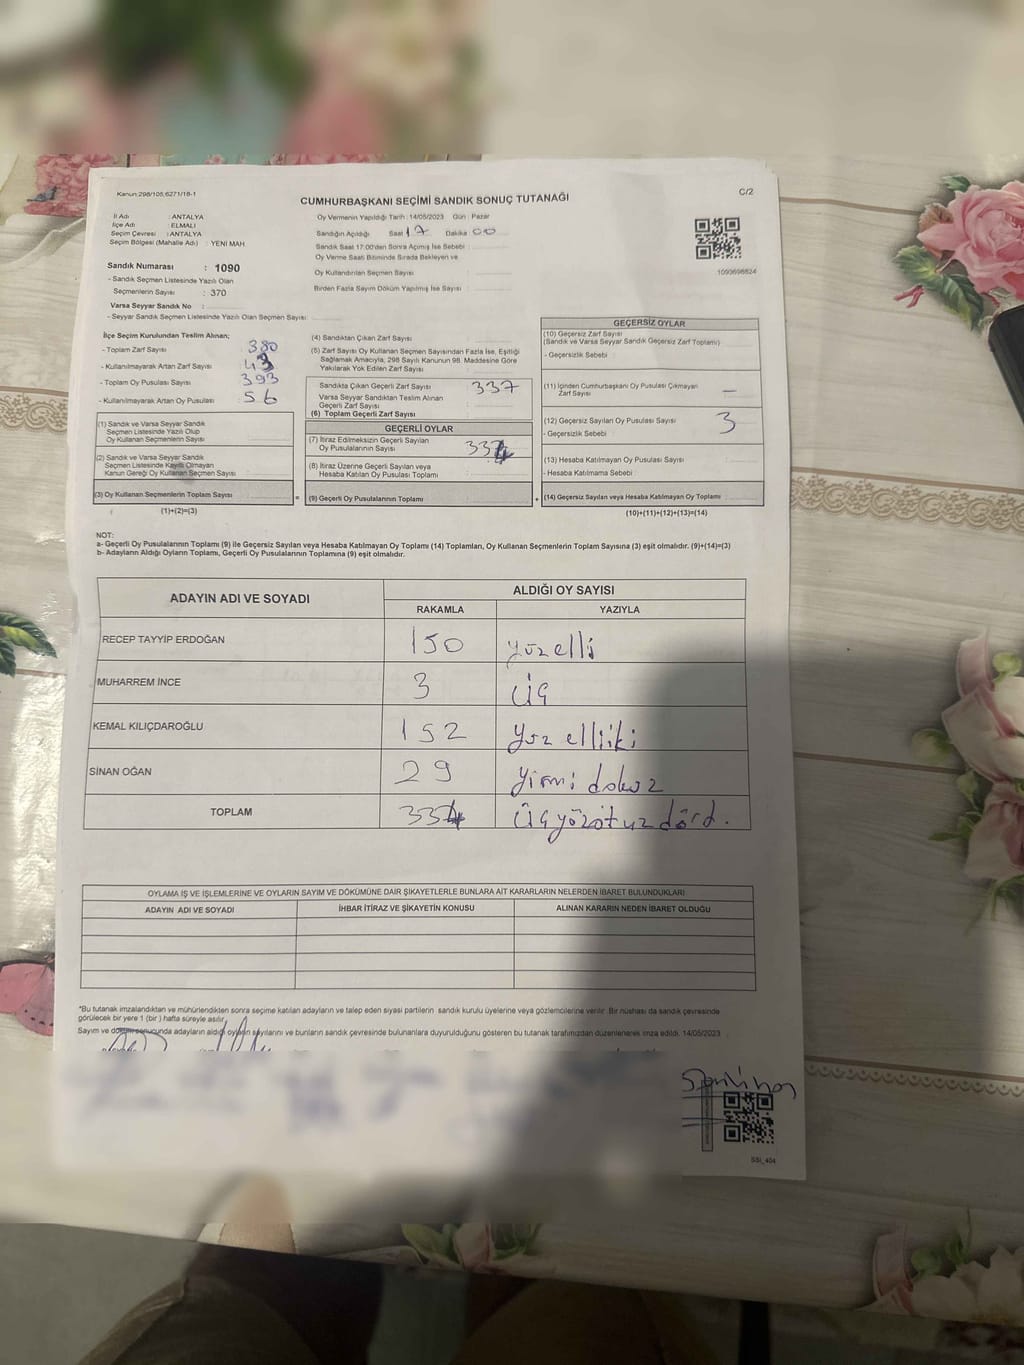 Kanun:298/105,6271/16-1
C/2
CUMHURBAŞKANI SEÇİMİ SANDIK SONUÇ TUTANAĞI
İl Adı : ANTALYA
İlçe Adı : ELMALI
Seçim Çevresi : ANTALYA
Seçim Bölgesi (Mahalle Adı) : YENİ MAH
Oy Vermenin Yapıldığı Tarih : 14/05/2023 Gün : Pazar
Sandığın Açıldığı Saat 17 Dakika 00
Sandık Saat 17:00'den Sonra Açımış İse Sebebi :
Oy Verme Saati Bitiminde Sırada Bekleyen ve
Oy Kullandırılan Seçmen Sayısı :
Birden Fazla Sayım Döküm Yapılmış İse Sayısı :
1093698824
Sandık Numarası : 1090
- Sandık Seçmen Listesinde Yazılı Olan
Seçmenlerin Sayısı : 370
Varsa Seyyar Sandık No :
- Seyyar Sandık Seçmen Listesinde Yazılı Olan Seçmen Sayısı :
İlçe Seçim Kurulundan Teslim Alınan;
- Toplam Zarf Sayısı 380
- Kullanılmayarak Artan Zarf Sayısı 43
- Toplam Oy Pusulası Sayısı 393
- Kullanılmayarak Artan Oy Pusulası 56
(1) Sandık ve Varsa Seyyar Sandık
Seçmen Listesinde Yazılı Olup
Oy Kullanan Seçmenlerin Sayısı
(2) Sandık ve Varsa Seyyar Sandık
Seçmen Listesinde Kayıtlı Olmayan
Kanun Gereği Oy Kullanan Seçmen Sayısı
(3) Oy Kullanan Seçmenlerin Toplam Sayısı
(1)+(2)=(3)
=
(4) Sandıktan Çıkan Zarf Sayısı
(5) Zarf Sayısı Oy Kullanan Seçmen Sayısından Fazla İse, Eşitliği
Sağlamak Amacıyla, 298 Sayılı Kanunun 98. Maddesine Göre
Yakılarak Yok Edilen Zarf Sayısı
Sandıkta Çıkan Geçerli Zarf Sayısı 337
Varsa Seyyar Sandıktan Teslim Alınan
Geçerli Zarf Sayısı
(6) Toplam Geçerli Zarf Sayısı
GEÇERLİ OYLAR
(7) İtiraz Edilmeksizin Geçerli Sayılan
Oy Pusulalarının Sayısı 334
(8) İtiraz Üzerine Geçerli Sayılan veya
Hesaba Katılan Oy Pusulası Toplamı
(9) Geçerli Oy Pusulalarının Toplamı
+
GEÇERSİZ OYLAR
(10) Geçersiz Zarf Sayısı
(Sandık ve Varsa Seyyar Sandık Geçersiz Zarf Toplamı)
- Geçersizlik Sebebi
(11) İçinden Cumhurbaşkanı Oy Pusulası Çıkmayan
Zarf Sayısı –
(12) Geçersiz Sayılan Oy Pusulası Sayısı 3
- Geçersizlik Sebebi
(13) Hesaba Katılmayan Oy Pusulası Sayısı
- Hesaba Katılmama Sebebi
(14) Geçersiz Sayılan veya Hesaba Katılmayan Oy Toplamı
(10)+(11)+(12)+(13)=(14)
NOT:
a- Geçerli Oy Pusulalarının Toplamı (9) ile Geçersiz Sayılan veya Hesaba Katılmayan Oy Toplamı (14) Toplamları, Oy Kullanan Seçmenlerin Toplam Sayısına (3) eşit olmalıdır. (9)+(14)=(3)
b- Adayların Aldığı Oyların Toplamı, Geçerli Oy Pusulalarının Toplamına (9) eşit olmalıdır.
ADAYIN ADI VE SOYADI
ALDIĞI OY SAYISI
RAKAMLA YAZIYLA
RECEP TAYYİP ERDOĞAN 150 yüzelli
MUHARREM İNCE 3 üç
KEMAL KILIÇDAROĞLU 152 yüz elliiki
SİNAN OĞAN 29 yirmi dokuz
TOPLAM 334 üçyüzotuzdörd.
OYLAMA İŞ VE İŞLEMLERİNE VE OYLARIN SAYIM VE DÖKÜMÜNE DAİR ŞİKAYETLERLE BUNLARA AİT KARARLARIN NELERDEN İBARET BULUNDUKLARI
ADAYIN ADI VE SOYADI İHBAR İTİRAZ VE ŞİKAYETİN KONUSU ALINAN KARARIN NEDEN İBARET OLDUĞU
*Bu tutanak imzalandıktan ve mühürlendikten sonra seçime katılan adayların ve talep eden siyasi partilerin sandık kurulu üyelerine veya gözlemcilerine verilir. Bir nüshası da sandık çevresinde
görülecek bir yere 1 (bir ) hafta süreyle asılır.
Sayım ve döküm sonucunda adayların aldığı oyların sayılarını ve bunların sandık çevresinde bulunanlara duyurulduğunu gösteren bu tutanak tarafımızdan düzenlenerek imza edildi. 14/05/2023
SSİ_404